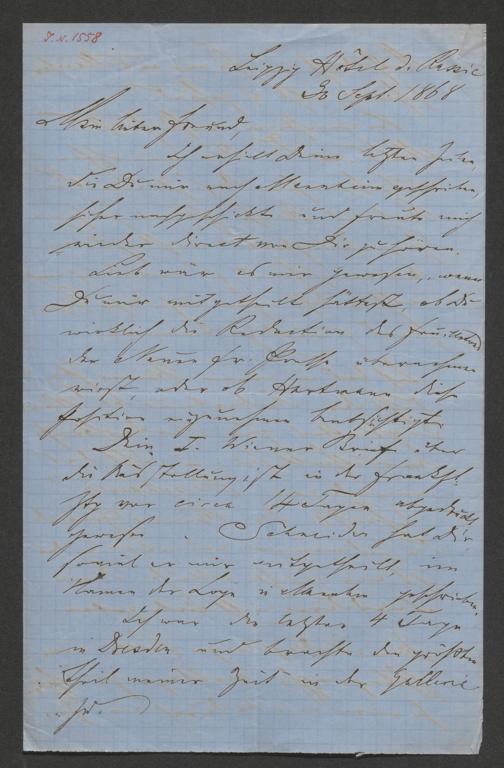 J.N. 1558
Leipzig Hôtel d. Russie
30 Sept. 1868
Mein lieber Freund,
Ich erhielt Deine letzten Zeilen,
die Du mir nach Mannheim geschrieben,
hierher nachgeschickt und freute mich
wieder direct von Dir zu hören.
Lieb wär es mir gewesen, wenn
Du mir mitgetheilt hättest, ob Du
wirklich die Redaction des Feuilletons
der Neuen fr. Presse übernehmen
wirst, oder ob Hartmann diese
Position einzunehmen beabsichtigt.
Dein I. Wiener Brief über
die Ausstellung ist in der Frankf.
Ztg vor circa 14 Tagen abgedruckt
gewesen. Schneider hat Dir,
soviel er mir mitgetheilt, im
Namen der geschrieben.
Ich war die letzten 4 Tage
in Dresden und brachte den größten
Theil meiner Zeit in der Gallerie
zu.